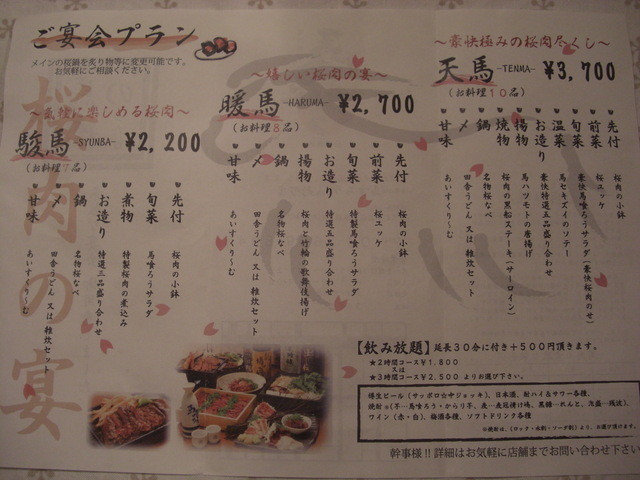 ご宴会プラン
メインの桜鍋を炙り物等に変更可能です。
お気軽にご相談ください。
桜肉の宴
〜気軽に楽しめる桜肉〜
駿馬 -SYUNBA- ¥2,200
(お料理7品)
先付 桜肉の小鉢
旬菜 馬喰ろうサラダ
煮物 特製桜肉の煮込み
お造り 特選三品盛り合わせ
鍋 名物桜なべ
〆 田舎うどん 又は 雑炊セット
甘味 あいすくり〜む
〜嬉しい桜肉の宴〜
暖馬 -HARUMA- ¥2,700
(お料理8品)
先付 桜肉の小鉢
前菜 桜ユッケ
旬菜 特製馬喰ろうサラダ
お造り 特選五品盛り合わせ
揚物 桜肉と竹輪の歌舞伎揚げ
鍋 名物桜なべ
〆 田舎うどん 又は 雑炊セット
甘味 あいすくり〜む
〜豪快極みの桜肉尽くし〜
天馬 -TENMA- ¥3,700
(お料理10品)
先付 桜肉の小鉢
前菜 桜ユッケ
旬菜 豪快馬喰ろうサラダ(豪快桜肉のせ)
温菜 馬セキズイのソテー
お造り 豪快特選五品盛り合わせ
揚物 馬ハツモトの唐揚げ
焼物 桜肉の黒船ステーキ(サーロイン)
鍋 名物桜なべ
〆 田舎うどん 又は 雑炊セット
甘味 あいすくり〜む
【飲み放題】延長30分に付き+500円頂きます。
★2時間コース¥1,800
又は
★3時間コース¥2,500 よりお選び下さい。
樽生ビール(サッポロ☆中ジョッキ)、日本酒、酎ハイ&サワー各種、
ワイン(赤・白)、梅酒各種、ソフトドリンク各種
※焼酎は、(ロック・水割・ソーダ割)より、お選び頂けます。
幹事様!!詳細はお気軽に店舗までお問い合わせ下さい